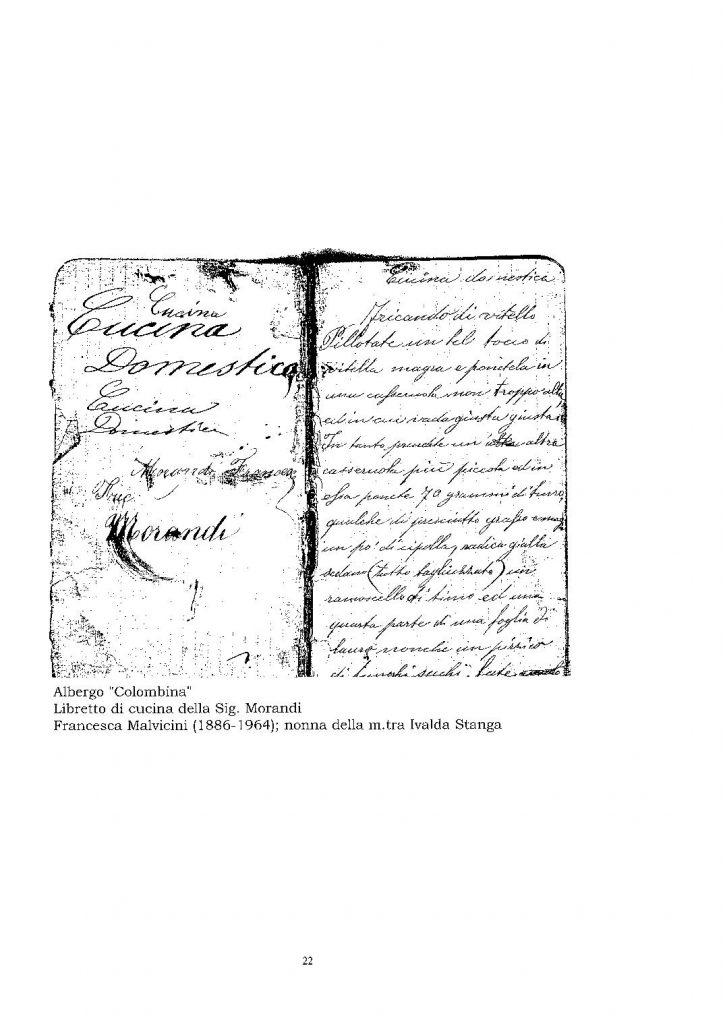 Cucina
Cucina
Domestica
Cucina
Domestica
Morandi
Morandi
Cucina domestica
Fricando di vitello
Pillotate un bel tocco di
vitella magra e ponetela in
una casseruola non troppo alta
ed in cui vada giusta giusta
In tanto prendete un altra
casseruola più piccola ed in
essa ponete 70 grammi di burro,
qualche di presciutto grasso
un po' di cipolla, radica gialla
sedano (tutto tagliuzzato) un
ramoscello di timo ed una
quarta parte di una foglia di
lauro nonche un pizzico
di funghi suchi.
Albergo "Colombina"
Libretto di cucina della Sig. Morandi
Francesca Malvicini (1886-1964); nonna della m.tra Ivalda Stanga
22